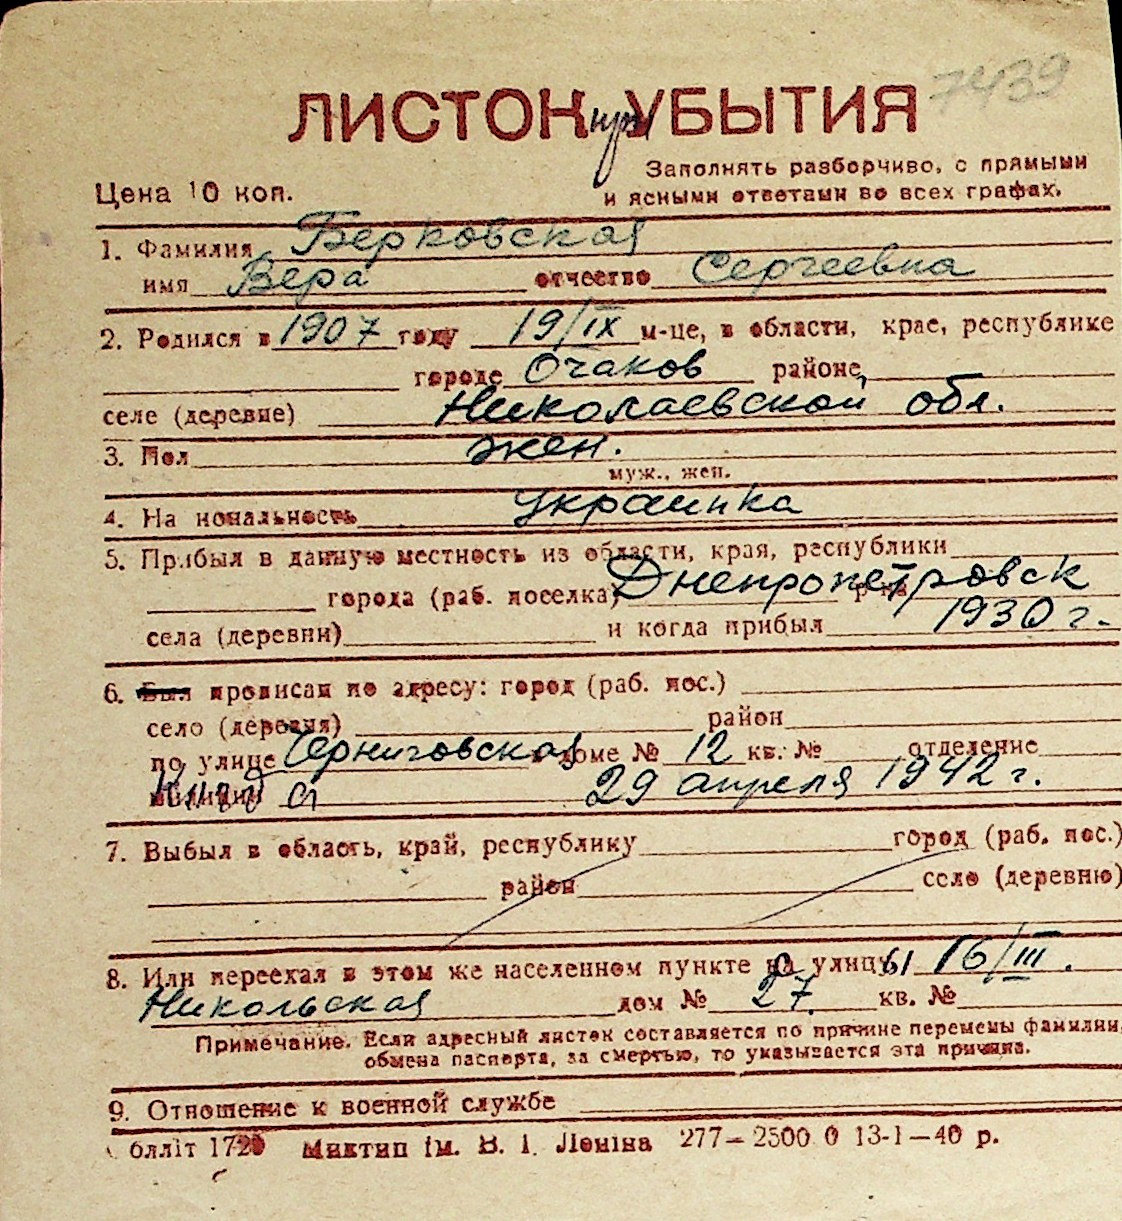 7439
ЛИСТОК при УБЫТИЯ
Цена 10 коп.
Заполнять разборчиво, с прямыми
и ясными ответами во всех графах.
1. Фамилия Берковская
имя Вера отчество Сергеевна
2. Родился в 1907 году 19/IX м-це, в области, крае, республике
городе Очаков районе
селе (деревне) Николаевской обл.
3. Пол жен.
муж., жен.
4. На иональность украинка
5. Прибыл в данную местность из области, края, республики
города (раб. поселка) Днепропетровск р-на
села (деревни) и когда прибыл 1930 г.
6. Был прописан по адресу: город (раб. пос.)
село (деревня) район
по улице Черниговская доме № 12 кв. № отделение
милиции 29 апреля 1942 г.
7. Выбыл в область, край, республику город (раб. пос.)
район село (деревню)
8. Или переехал в этом же населенном пункте на улицу ы 16/III.
Никольская дом № 27. кв. №
Примечание. Если адресный листок составляется по причине перемены фамилии,
обмена паспорта, за смертью, то указывается эта причина.
9. Отношение к военной службе
бліт 1720 Миктип ім. В. І. Леніна 277—2500 0 13-1—40 р.